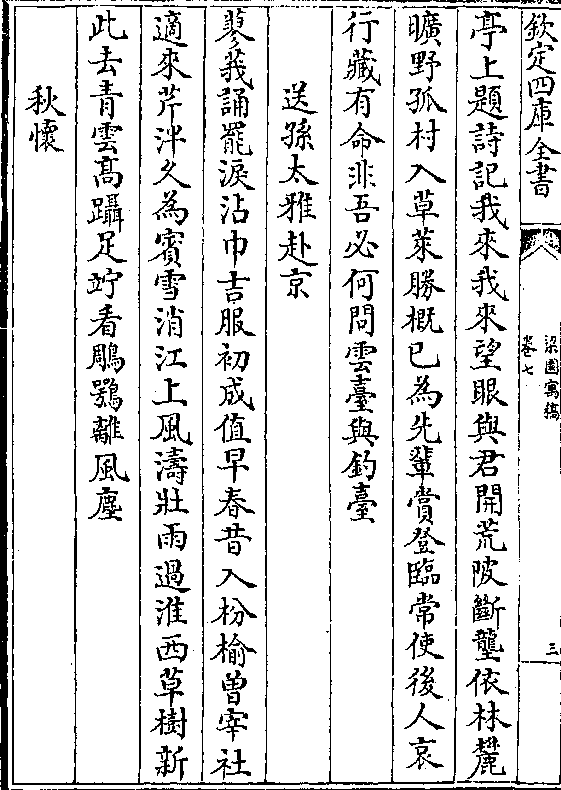 欽定四庫全書
梁園寓稿
卷七
三
亭上題詩記我來我來望眼與君開荒陂斷壟依林麓
曠野孤村入草萊勝概已為先輩賞登臨常使後人哀
行藏有命非吾必何問雲臺與釣臺
送孫太雅赴京
蓼莪誦罷淚沾巾吉服初成值早春昔入枌榆曾宰社
適來芹泮久為賓雪消江上風濤壯雨過淮西草樹新
此去青雲髙躡足竚看鵰鶚離風塵
秋懷